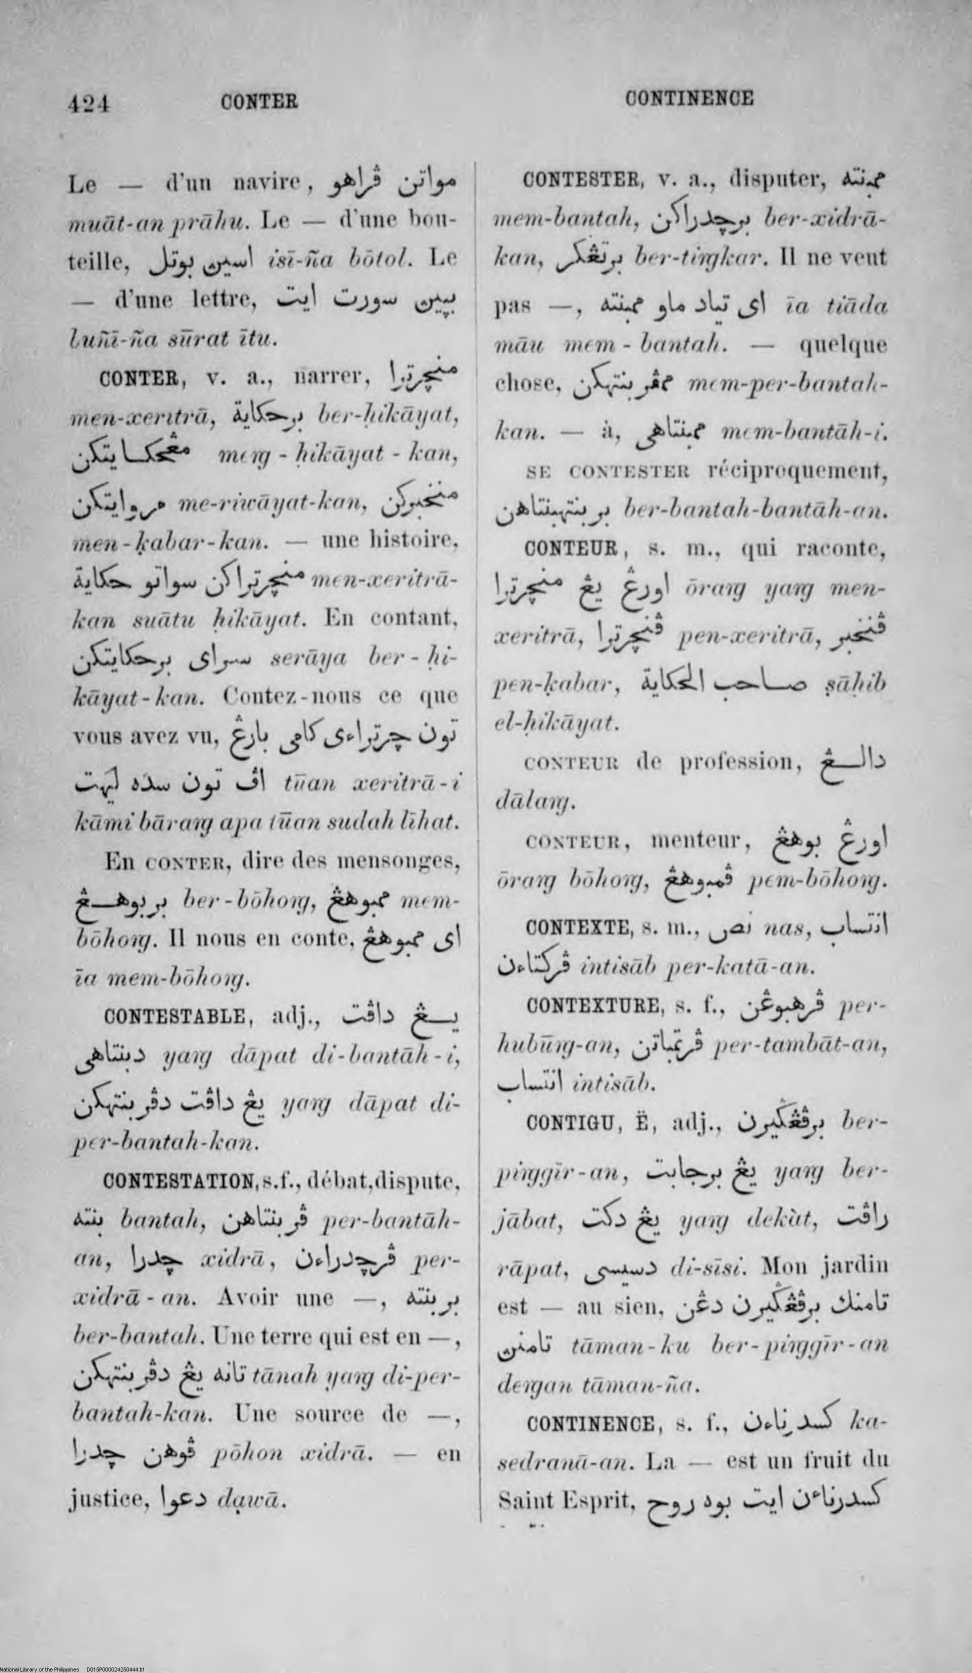 424 CONTER CONTINENCE
Le — d'un navire, مواتن ڤراهو
muāt-an prāhu. Le — d'une bou-
teille, اسين بوتل isī-ña bōtol. Le
— d'une lettre, بپين سورت ايت
buñī-ña sūrat ītu.
CONTER, v. a., narrer, منچرترا
men-xeritrā, برحكاية ber-ḥikāyat,
مڠحكايتكن meṛg-ḥikāyat-kan,
مروايتكن me-riwāyat-kan, منخبركن
men-ḳabar-kan. — une histoire,
منچرتراكن سواتو حكاية men-xeritrā-
kan suātu ḥikāyat. En contant,
سراي برحكايتكن serāya ber-ḥi-
kāyat-kan. Contez-nous ce que
vous avez vu, تون چرتراءى كامى بارڠ
اڤ تون سده ليهت tūan xeritrā-i
kāmi bāraṛg apa tūan sudah līhat.
En CONTER, dire des mensonges,
بربوهڠ ber-bōhoṛg, ممبوهڠ mem-
bōhoṛg. Il nous en conte, اى ممبوهڠ
īa mem-bōhoṛg.
CONTESTABLE, adj., يڠ داڤت
دبنتاهى yaṛg dāpat di-bantāh-i,
يڠ داڤت دڤربنتهكن yaṛg dāpat di-
per-bantah-kan.
CONTESTATION, s. f., débat, dispute,
بنته bantah, ڤربنتاهن per-bantāh-
an, چدرا xidrā, ڤرچدراءن per-
xidrā-an. Avoir une —, بربنته
ber-bantah. Une terre qui est en —,
تانه يڠ دڤربنتهكن tānah yaṛg di-per-
bantah-kan. Une source de —,
ڤوهن چدرا pōhon xidrā. — en
justice, دعوا daꞷwā.
CONTESTER, v. a., disputer, ممبنته
mem-bantah, برچدراكن ber-xidrā-
kan, برتڠكر ber-tiṛgkar. Il ne veut
pas —, اى تياد ماو ممبنته īa tiāda
māu mem-bantah. — quelque
chose, ممڤربنتهكن mem-per-bantah-
kan. — à, ممبنتاهى mem-bantāh-i.
SE CONTESTER réciproquement,
بربنتهبنتاهن ber-bantah-bantāh-an.
CONTEUR, s. m., qui raconte,
اورڠ يڠ منچرترا ōraṛg yaṛg men-
xeritrā, ڤنچرترا pen-xeritrā, ڤنخبر
pen-ḳabar, صاحب الحكاية ṣāḥib
el-ḥikāyat.
CONTEUR de profession, دالڠ
dālaṛg.
CONTEUR, menteur, اورڠ بوهڠ
ōraṛg bōhoṛg, ڤمبوهڠ pem-bōhoṛg.
CONTEXTE, s. m., نص nas, انتساب
ڤركتاءن intisāb per-katā-an.
CONTEXTURE, s. f., ڤرهبوڠن per-
hubūṛg-an, ڤرتمباتن per-tambāt-an,
انتساب intisāb.
CONTIGU, Ë, adj., برڤڠڬيرن ber-
piṛggīr-an, يڠ برجابت yaṛg ber-
jābat, يڠ دكت yaṛg dekàt, راڤت
rāpat, دسيسى di-sīsi. Mon jardin
est — au sien, تامنك برڤڠڬيرن دڠن
تامنن tāman-ku ber-piṛggīr-an
deṛgan tāman-ña.
CONTINENCE, s. f., كسدرناءن ka-
sedranā-an. La — est un fruit du
Saint Esprit, كسدرناءن ايت بوه روح
National Library of the Philippines